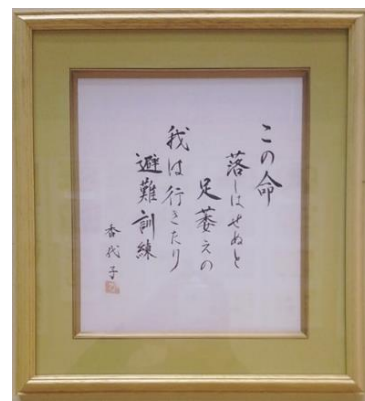 この命
落しはせぬと
足萎えの
我は行きたり
避難訓練
香代子